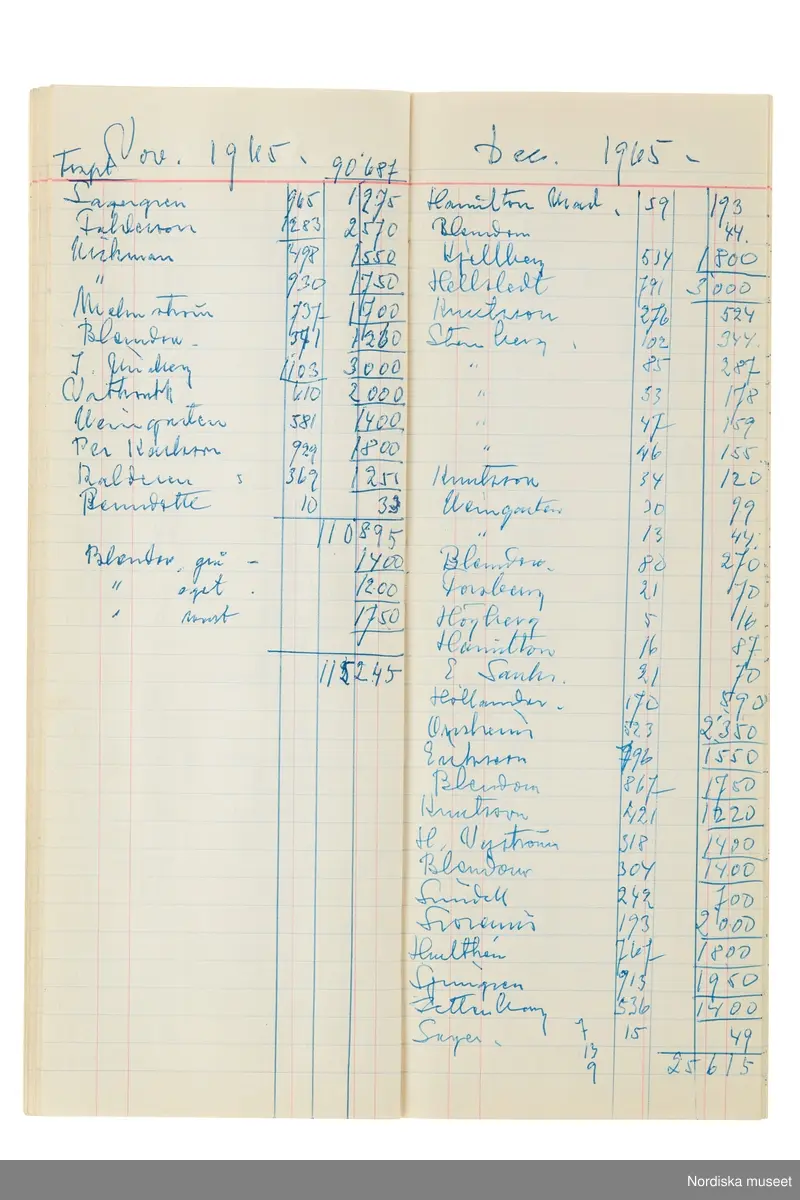 Nov. 1965.
Trspt 90'687
Lagergren 965 1275
Falderson 1283 2570
Wickman 498 1550
" 930 1750
Malmström 737 1700
Blendow. 371 1260
J. 1103 3000
610 2000
Weingarten 581 1400
Per Karlsson 929 1800
369 1251
Bernadotte 10 33
110895
Blendow, grå - 1400
" eget . 1200
" svart 1750
115245
Dec. 1965 -
Hamilton 59 193
Blendow 44.
Kjellberg 534 1800
Hellstedt 791 3000
Knutsson 276 524
Stenberg . 102 344.
" 85 287
" 53 178
" 47 159
" 46 155
Knutsson 34 120
Weingarten 30 99
" 13 44.
Blendow. 80 270
Forsberg 21 70
Högberg 5 16
Hamilton 16 87
E Sachs. 21 70
Hollander. 170 590
323 2'350
Eriksson 796 1550
Blendow 867 1750
Knutsson 421 1220
H. Nyström 318 1400
Blendow 304 1400
Sundell 242 700
193 2'000
Hulthén 767 1800
Ljunggren 913 1950
Zetterberg 536 1400
Sager. 7 15 49
13
9 25615
Nordiska museet